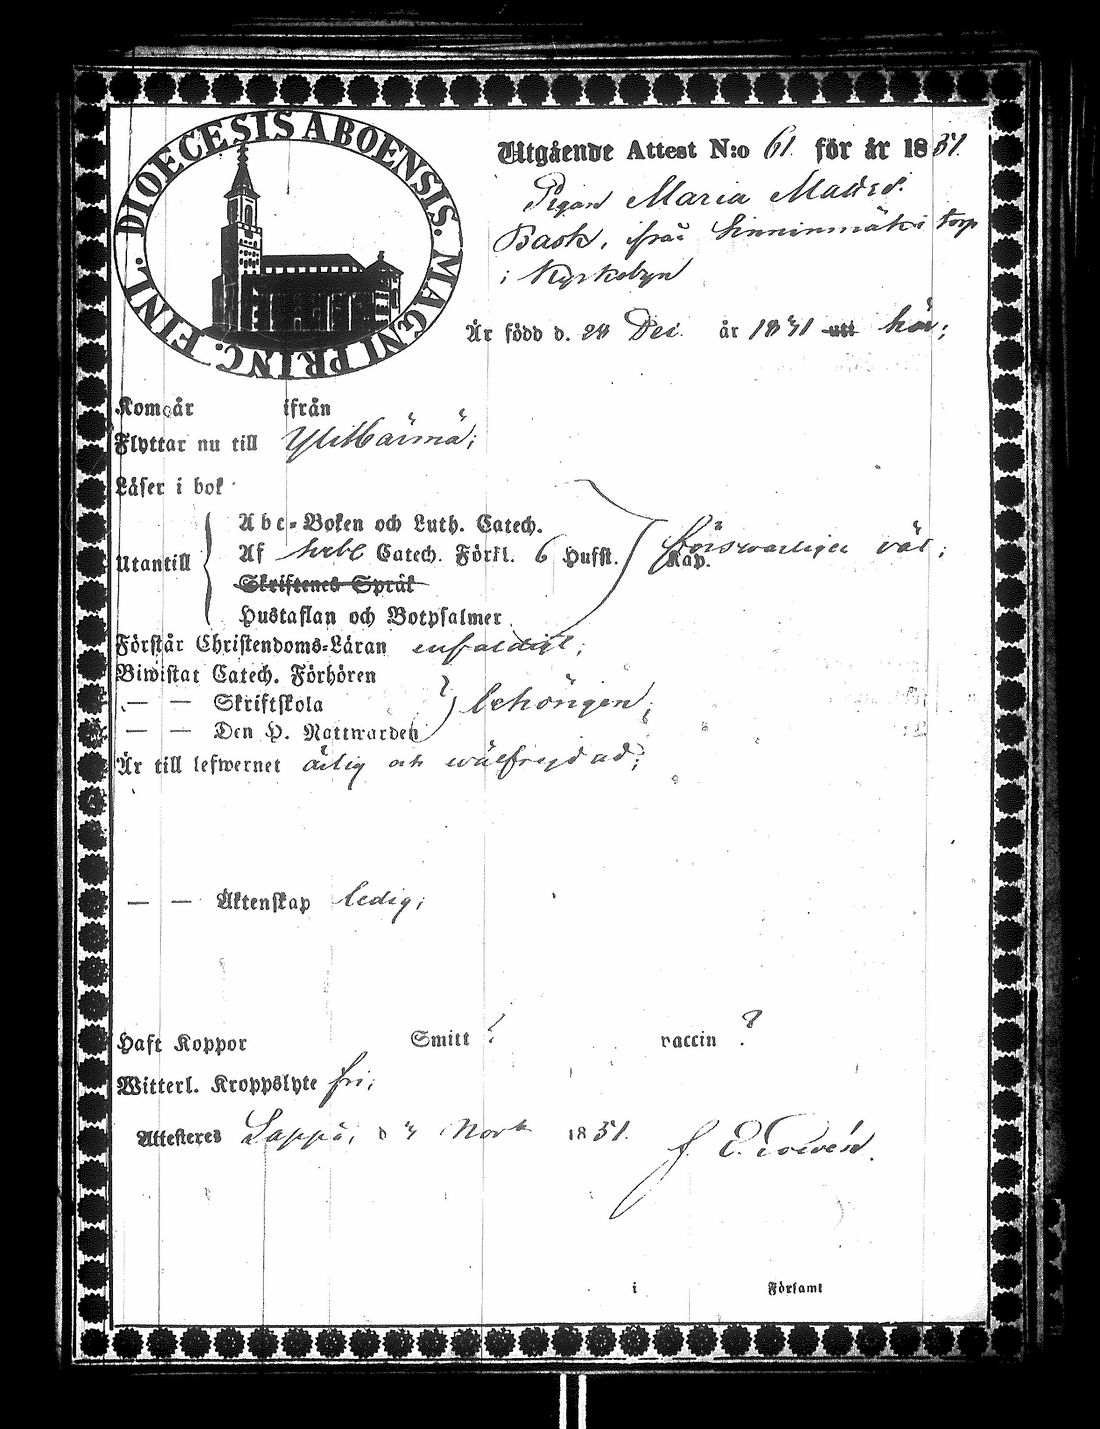 DIOECESIS ABOENSIS. MAGNI PRINC. FINL.
Utgående Attest N:o 61. för år 1851.
Pigan Maria Matts d.
Bask, ifrån torp
i Kyrkobyn
Är född d. 24 Dec. år 1831 utt här;
Kom år ifrån
Flyttar nu till Ylihärmä;
Läser i bok
Abc-Boken och Luth. Catech.
Utantill Af hela Catech. Förkl. 6 Hufst. Kap. försvarligen väl;
Skriftenes Språk
Hustaflan och Botpsalmer
Förstår Christendoms-Läran enfaldigt;
Biwistat Catech. Förhören
— — Skriftskola behörigen;
— — Den H. Nattwarden
Är till lefwernet ärlig och wälfrejdad;
— — Äktenskap ledig;
Haft Koppor Smitt ? vaccin ?
Witterl. Kroppslyte fri;
Attesteres Lappo, d Novb 1851.
i Församl